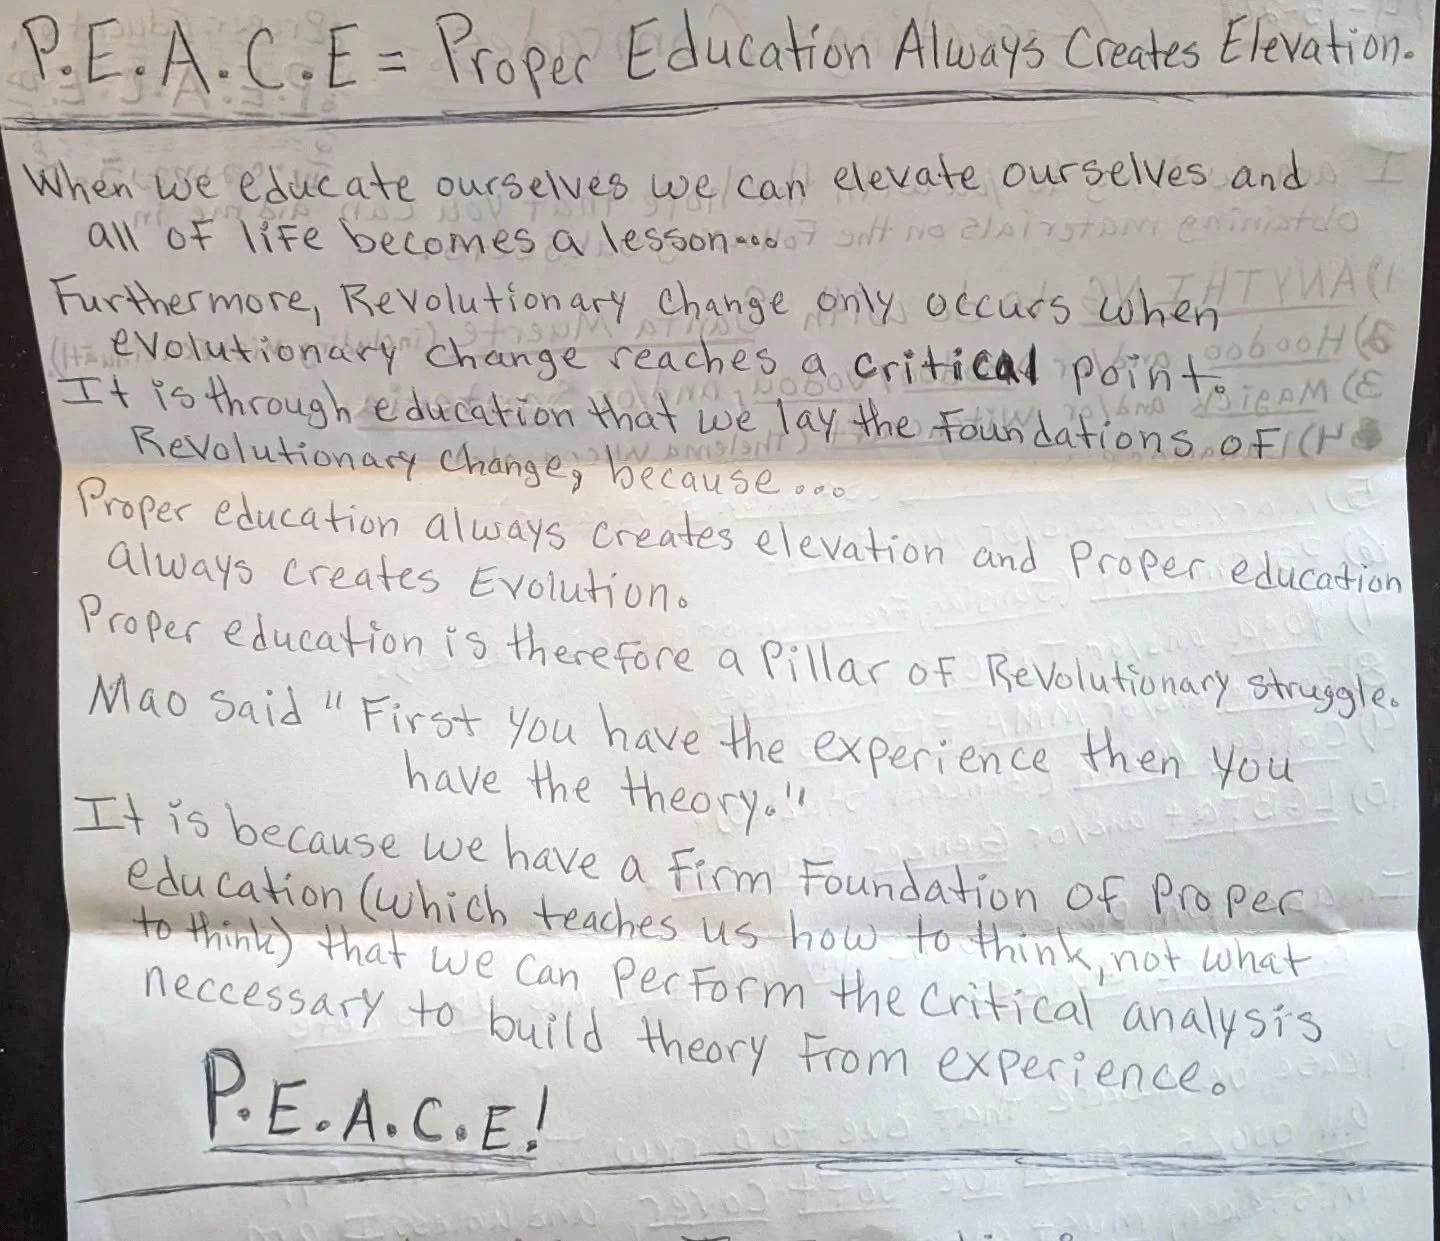 P.E.A.C.E = Proper Education Always Creates Elevation.
When we educate ourselves we can elevate ourselves and
all of life becomes a lesson....
Furthermore, Revolutionary change only occurs when
evolutionary change reaches a critical point.
It is through education that we lay the foundations of
Revolutionary change, because...
Proper education always creates elevation and proper education
always creates Evolution.
Proper education is therefore a pillar of Revolutionary struggle.
Mao said "First you have the experience then you
have the theory."
It is because we have a firm foundation of proper
education (which teaches us how to think, not what
to think) that we can perform the critical analysis
neccessary to build theory from experience.
P.E.A.C.E!